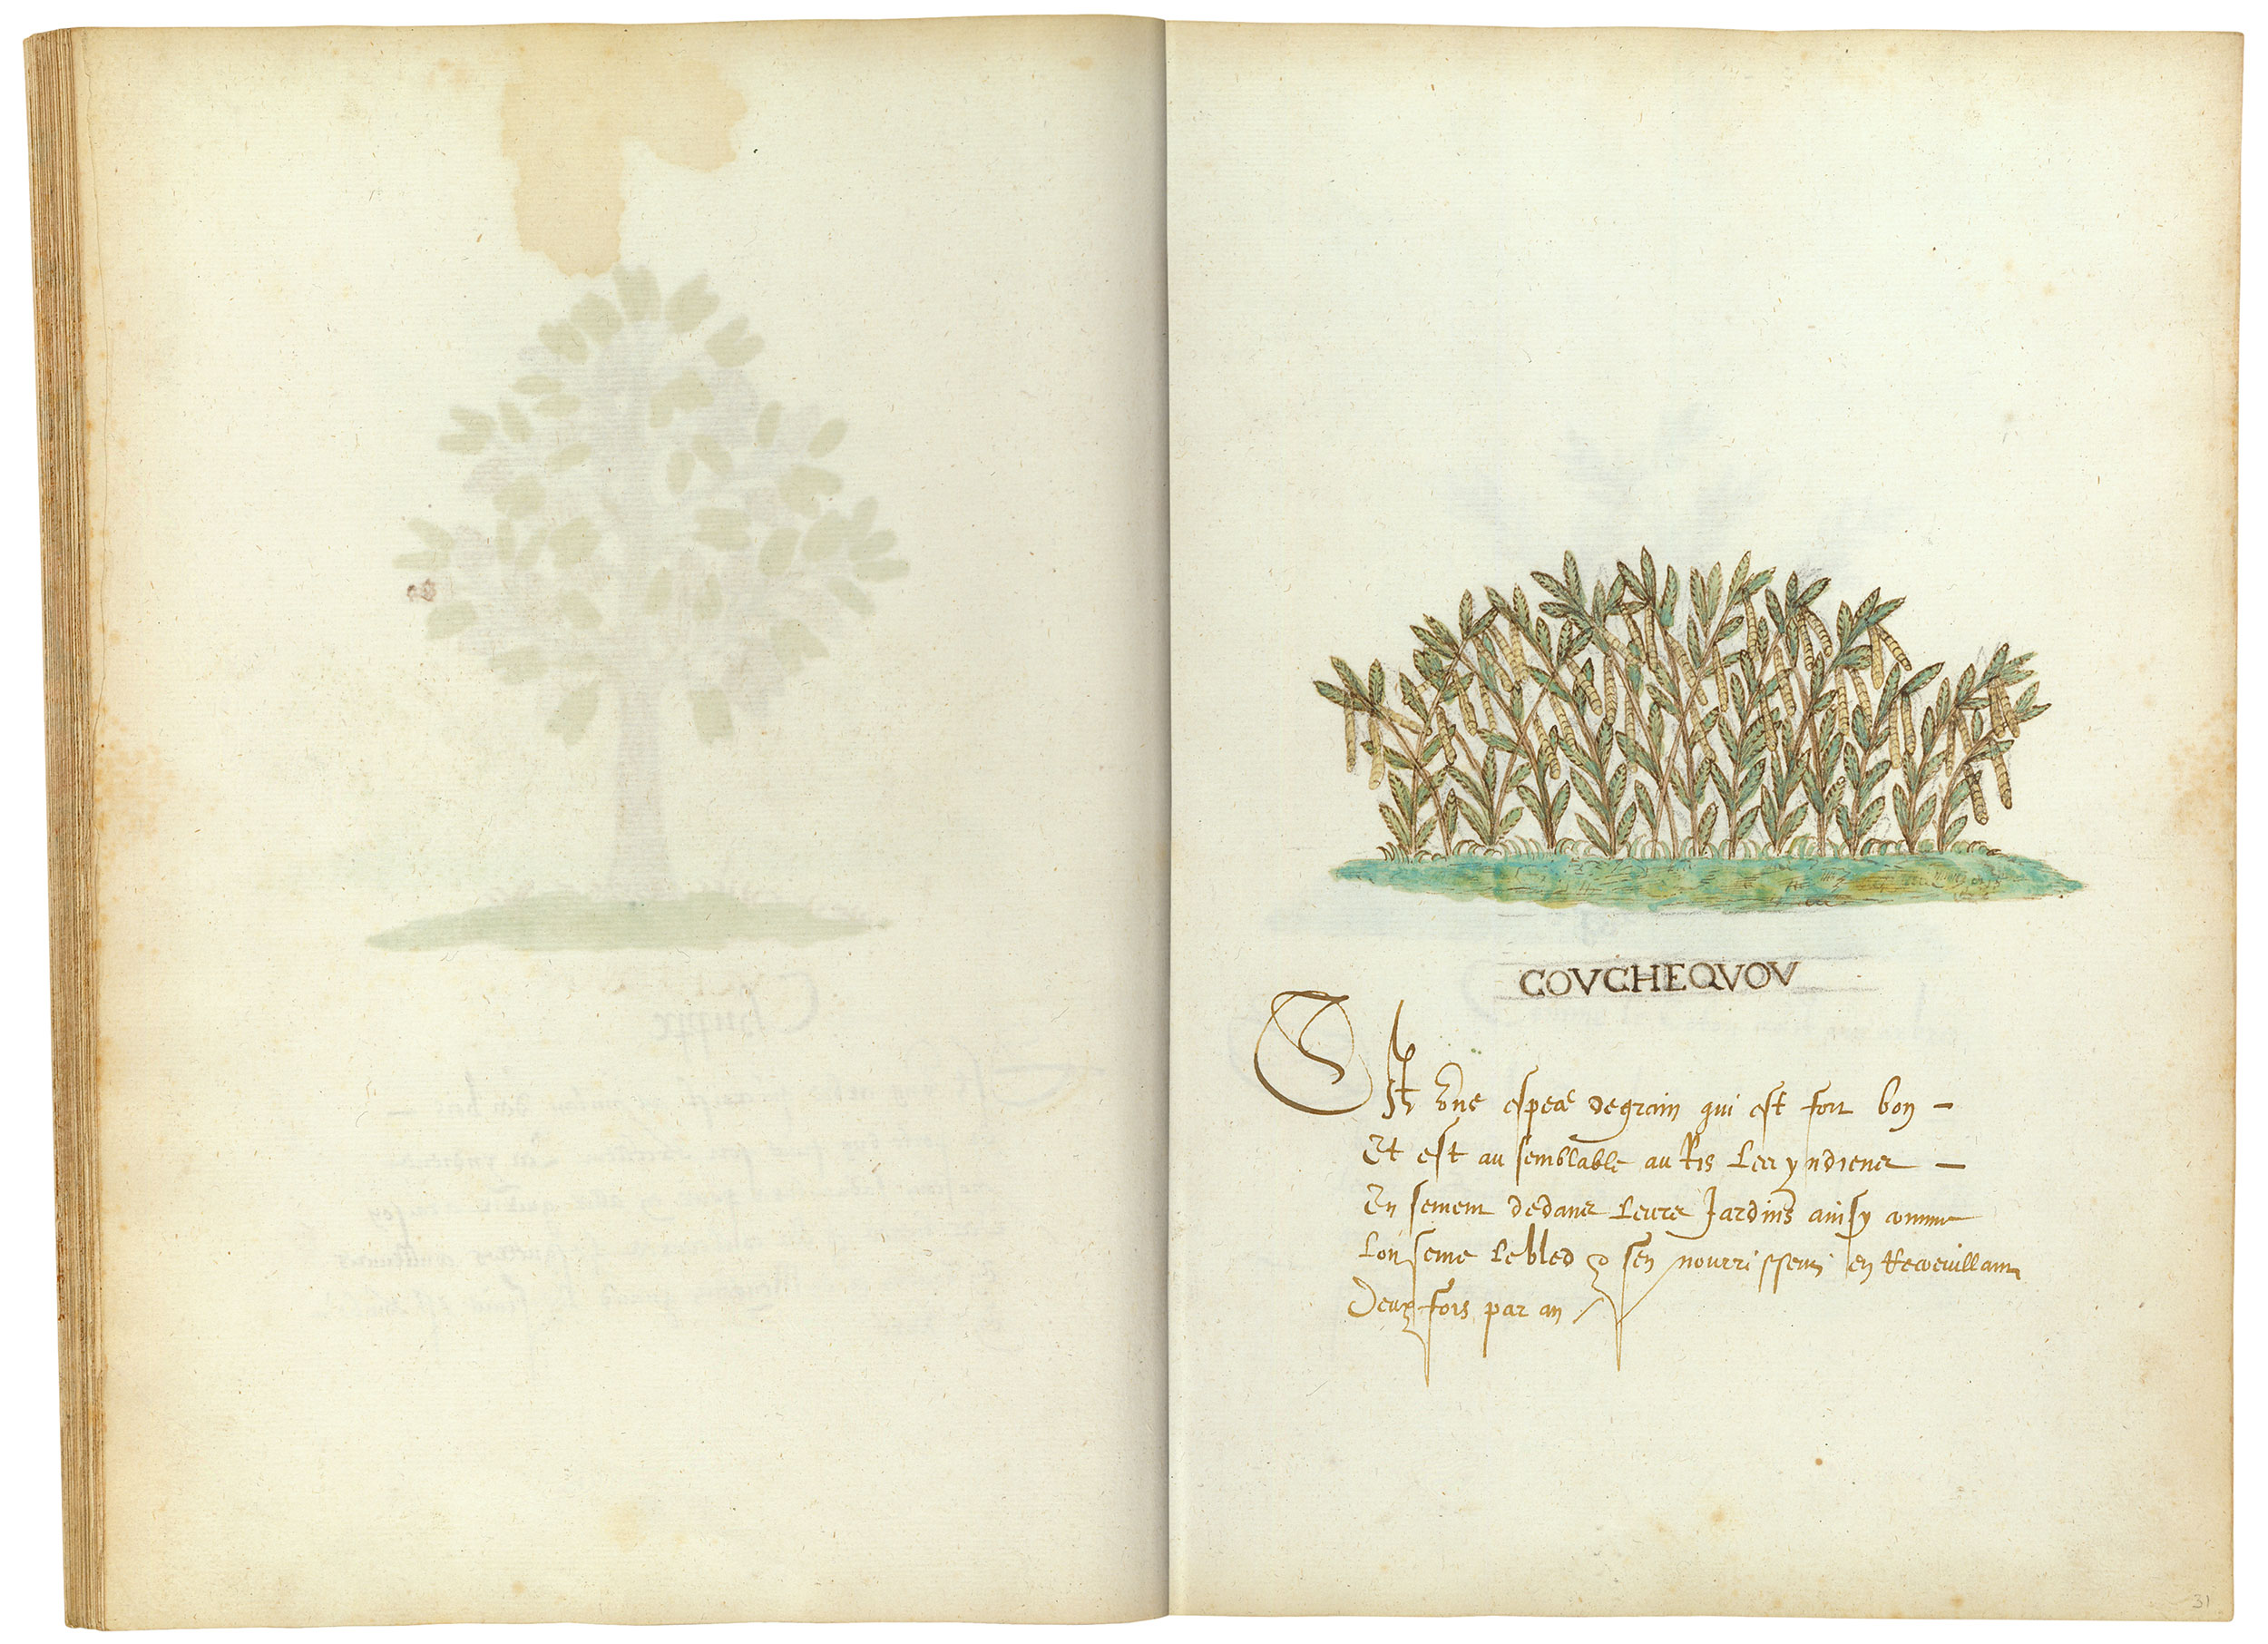 GOVCHEQVOV
Est une espece de grain qui est fort bon
Et est au semblable au Ris Les yndiens
En sement dedans Leurs Jardins ainsy comme
Lon seme Le bled & sen nourrissent en Recoeuillant
Deux fois par an
31